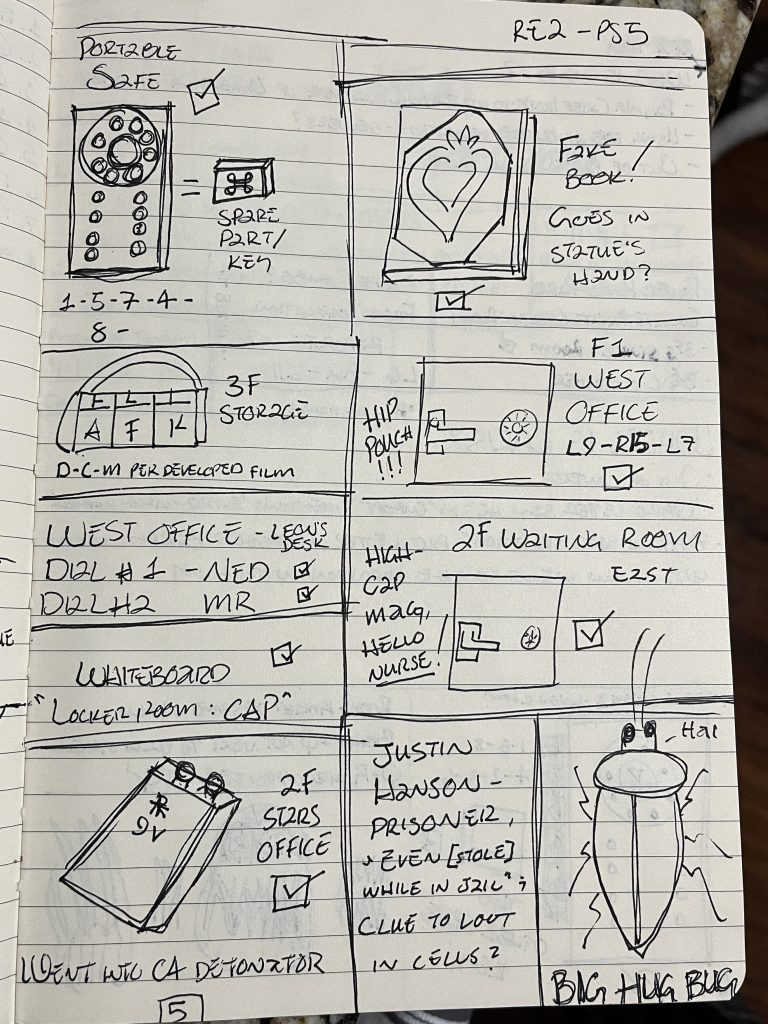 RE2 - PS5
PORTABLE
SAFE
=
SPARE
PART/
KEY
1-5-7-4-
8-
FAKE
BOOK!
GOES IN
STATUE'S
HAND?
E L L
A F K
3F
STORAGE
D-C-M PER DEVELOPED FILM
HIP
POUCH
!!!
F1
WEST
OFFICE
L9-R15-L7
WEST OFFICE - LEON'S
DESK
DIAL #1 - NED
DIAL #2 MR
HIGH-
CAP
MAG,
HELLO
NURSE!
2F WAITING ROOM
EAST
WHITEBOARD
"LOCKER ROOM: CAP"
9V
2F
STARS
OFFICE
WENT INTO C4 DETONATOR
5
JUSTIN
HANSON -
PRISONER,
"EVEN [STOLE]
WHILE IN JAIL";
CLUE TO LOOT
IN CELLS?
HAI
BIG HUG BUG